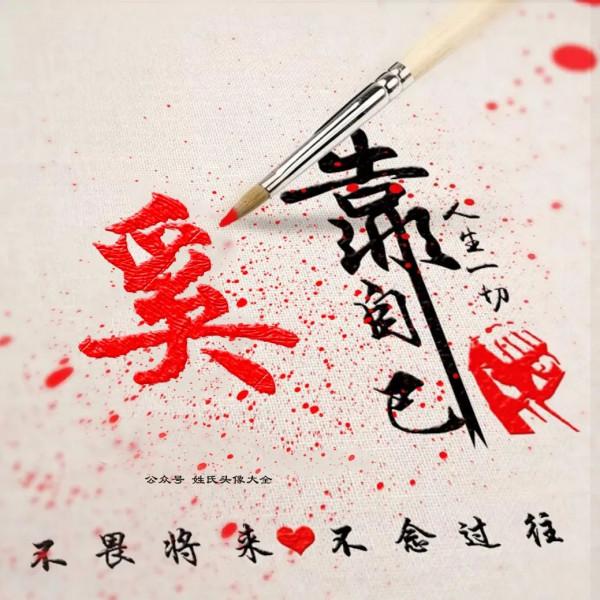 奚
靠自己
人生一切
公众号 姓氏头像大全
不畏将来 不念过往